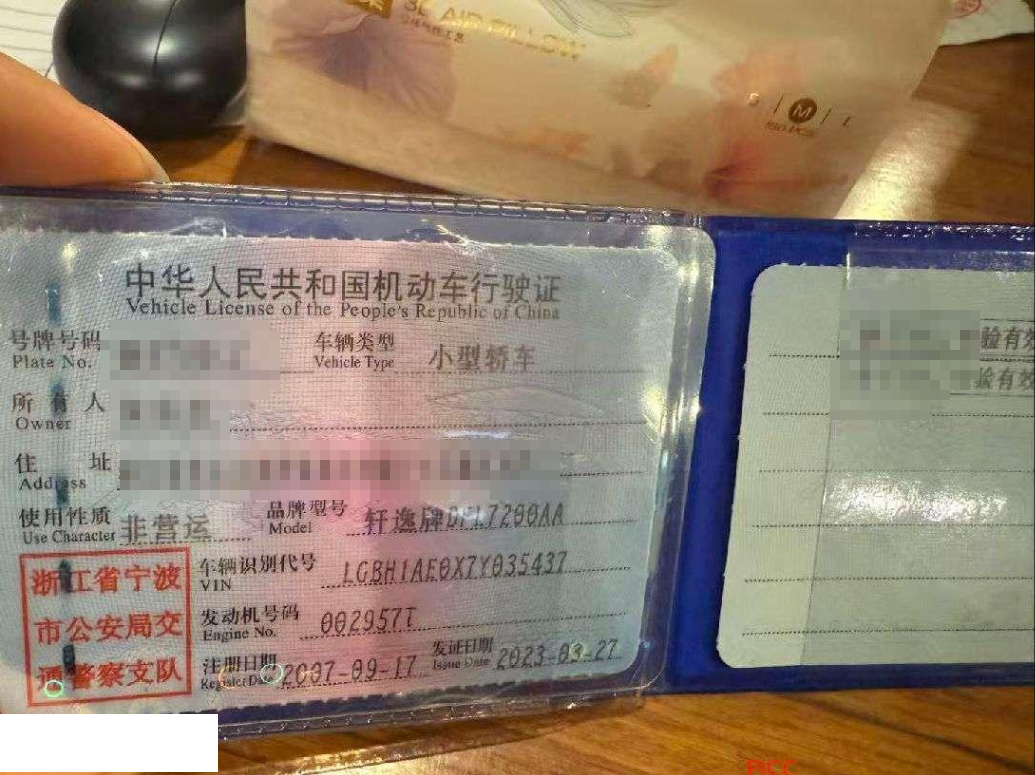 3E AIR PILLOW
S | M | L
中华人民共和国机动车行驶证
Vehicle License of the People's Republic of China
号牌号码
Plate No.
车辆类型
Vehicle Type
小型轿车
所有人
Owner
住址
Address
使用性质
Use Character
非营运
品牌型号
Model
轩逸牌DFL7200AA
浙江省宁波
市公安局交
通警察支队
车辆识别代号
VIN
LGBH1AE0X7Y035437
发动机号码
Engine No.
002957T
注册日期
Register Date
2007-09-17
发证日期
Issue Date
2023-03-27
验有效
验有效
PICC